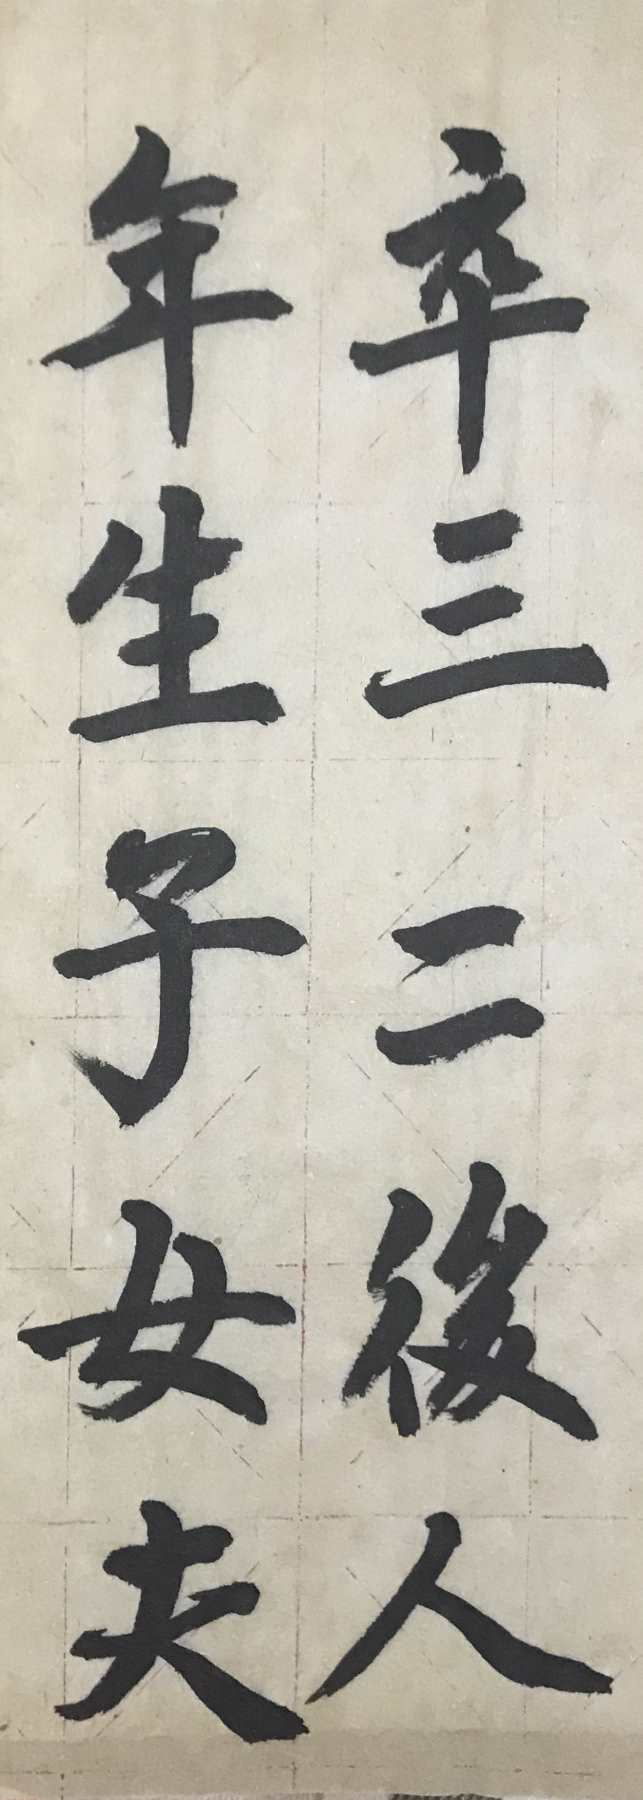 卒三二後人
年生子女夫